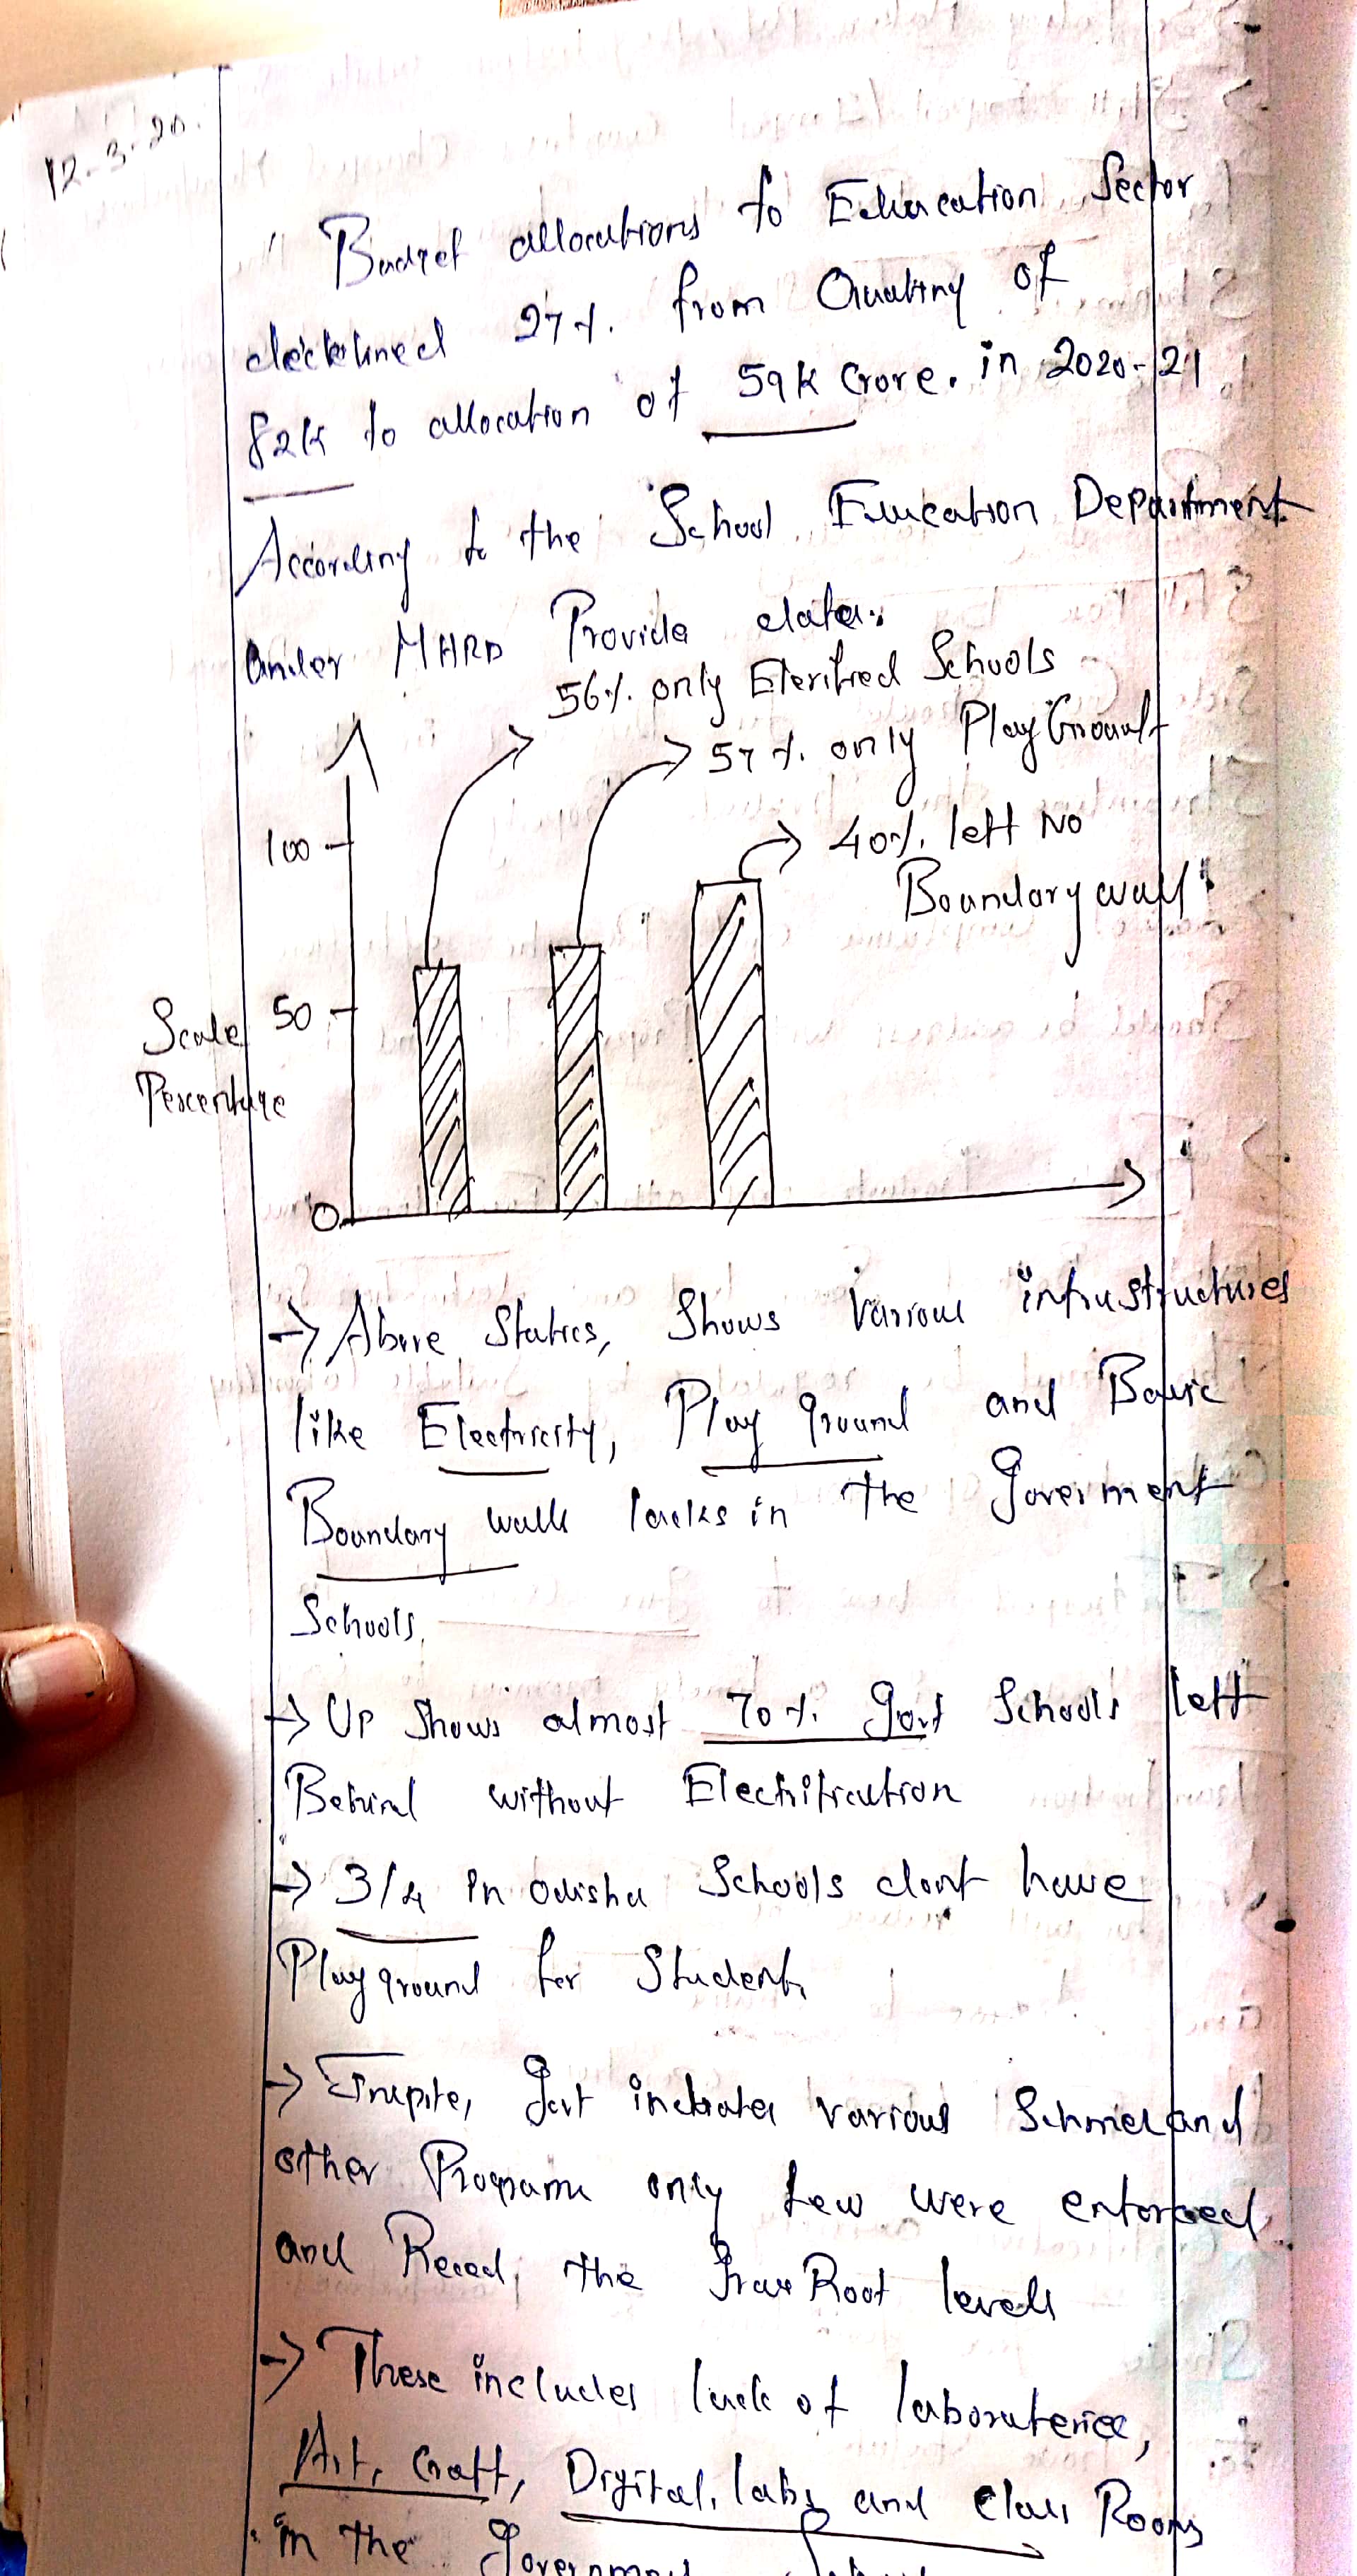 12-3-20.
Budget allocations to Education Sector
declined 27%. from Quality of
82k to allocation of 59k Crore. in 2020-21
According to the School Education Department
under MHRD Provide data:
56%. only Eterified Schools
57%. only Play Ground
40%. left No
Boundary wall
100
50
Scale
Percentage
0
→ Above Statics, Shows Various infrustructures
like Electricity, Play ground and Basic
Boundary walls lacks in the Goverment
Schools.
→ UP Shows almost 70%. govt Schools left
Behind without Electrification
→ 3/4 in Odisha Schools dont have
Play ground for Student.
→ Govt various and
other Programs only few were enforced
and the Grass Root levels
→ These includes lack of laboraterice,
Art, Craft, Digital, labs and Class Rooms
in the Government